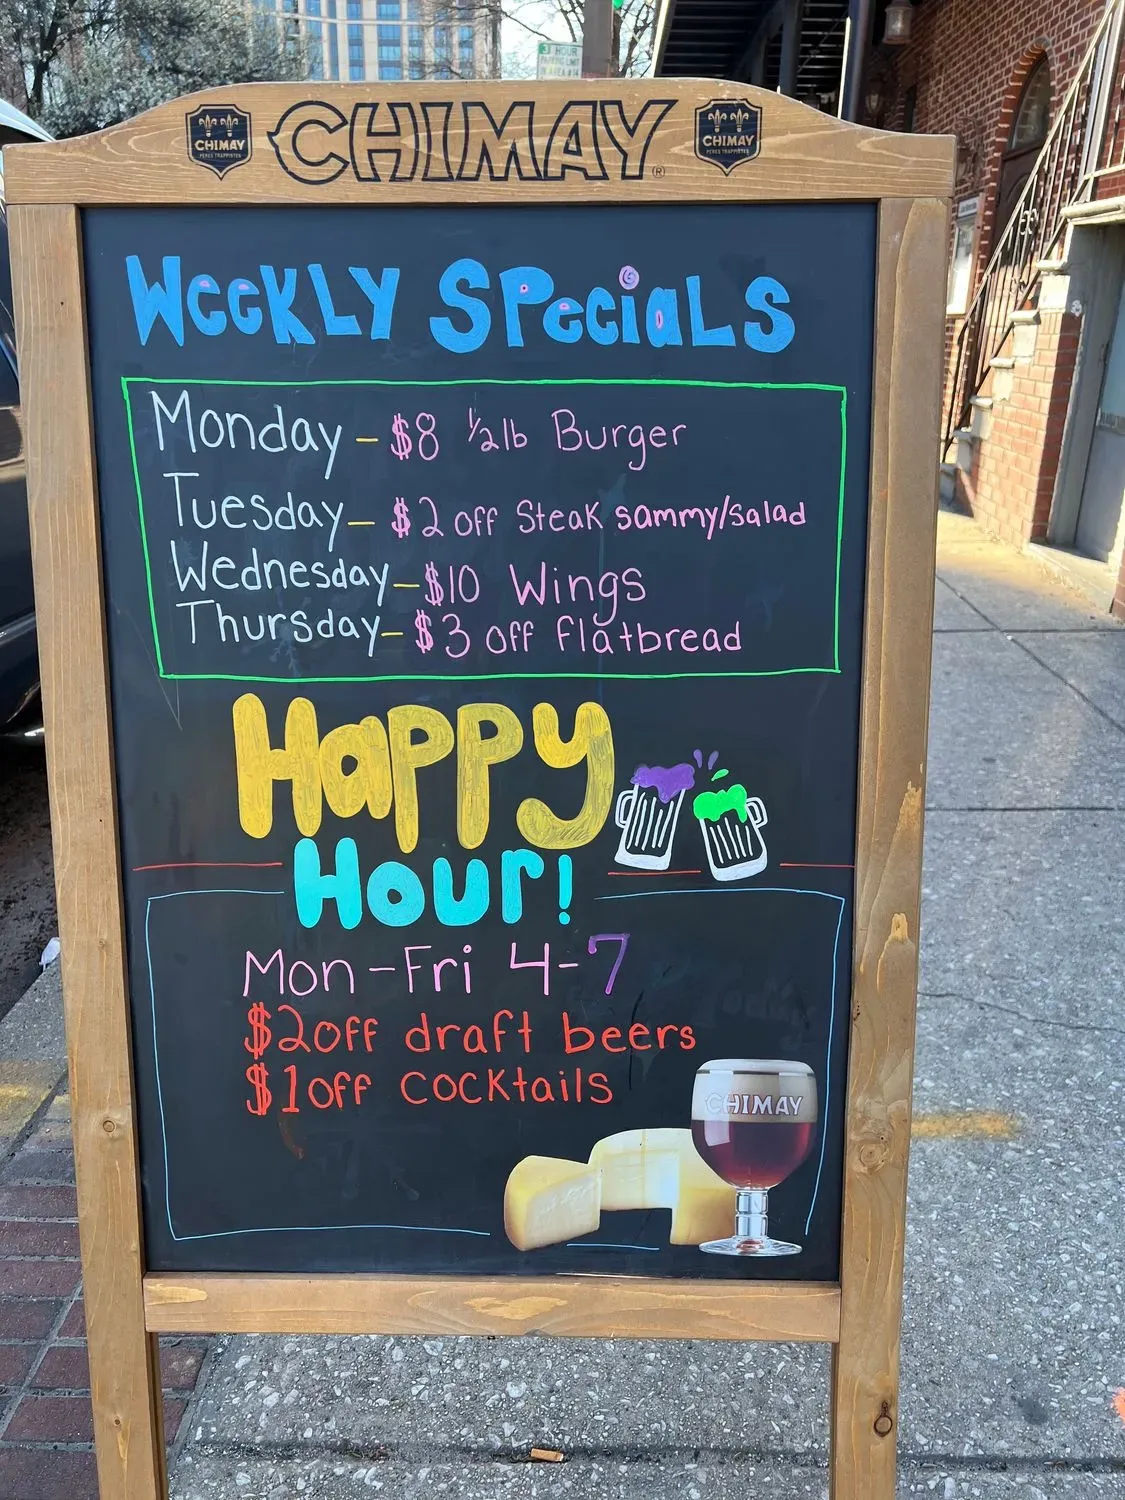 3 HOUR
PARKING LIMIT
CHIMAY
PERES TRAPPISTES
CHIMAY®
CHIMAY
PERES TRAPPISTES
WeeKLY SPeciaLS
Monday - $8 1/2lb Burger
Tuesday - $2 off Steak sammy/salad
Wednesday - $10 Wings
Thursday - $3 off flatbread
Happy
Hour!
Mon-Fri 4-7
$2off draft beers
$1off cocktails
CHIMAY